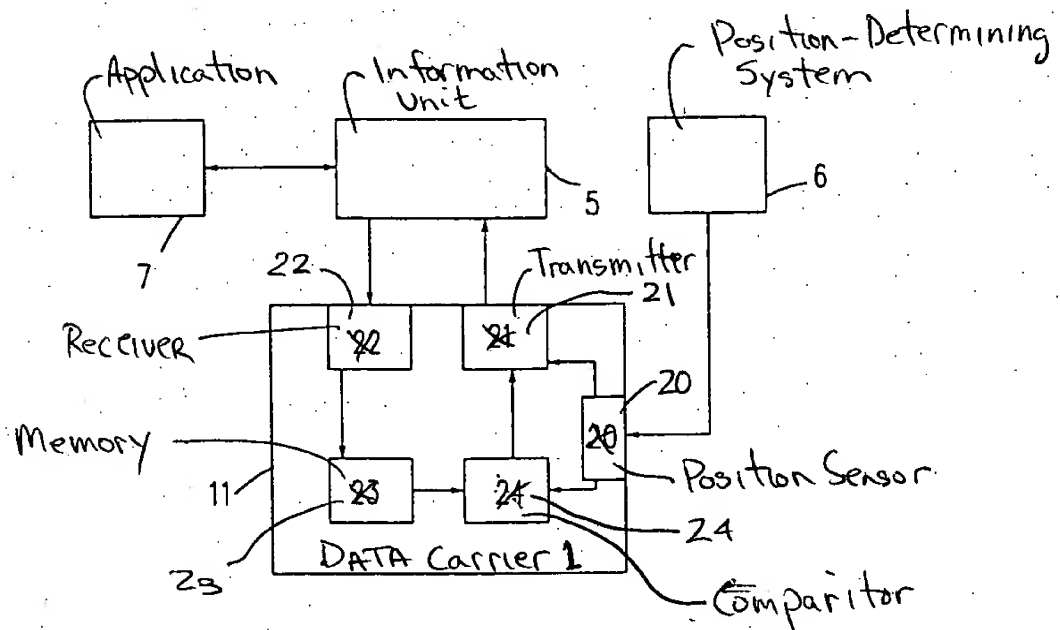 Application
Information
Unit
Position-Determining
System
7
5
6
22
Transmitter
21
Receiver
22
21
20
20
Memory
Position Sensor
11
23
24
24
23
DATA Carrier 1
Comparitor